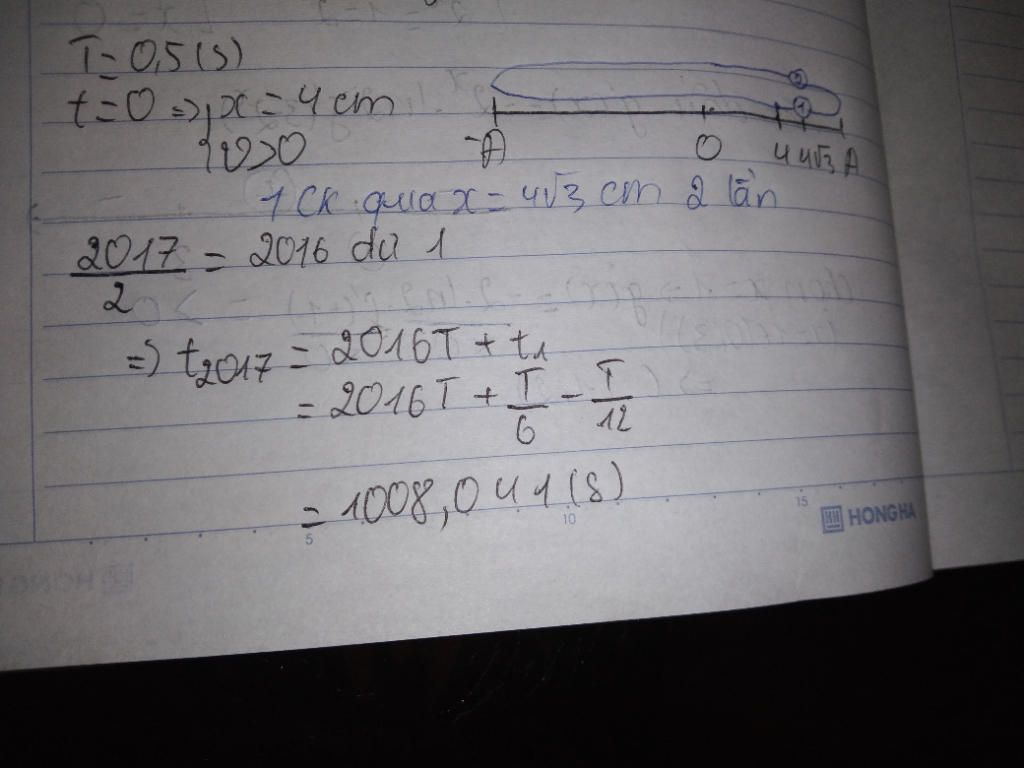 T = 0,5 (s)
t = 0 => { x = 4 cm
v > 0
-A O 4 4√3 A
2 1
1 CK qua x = 4√3 cm 2 lần
2017/2 = 2016 dư 1
=> t2017 = 2016T + t1
= 2016T + T/6 - T/12
= 1008,041 (s)
5 10 15
HONG HA